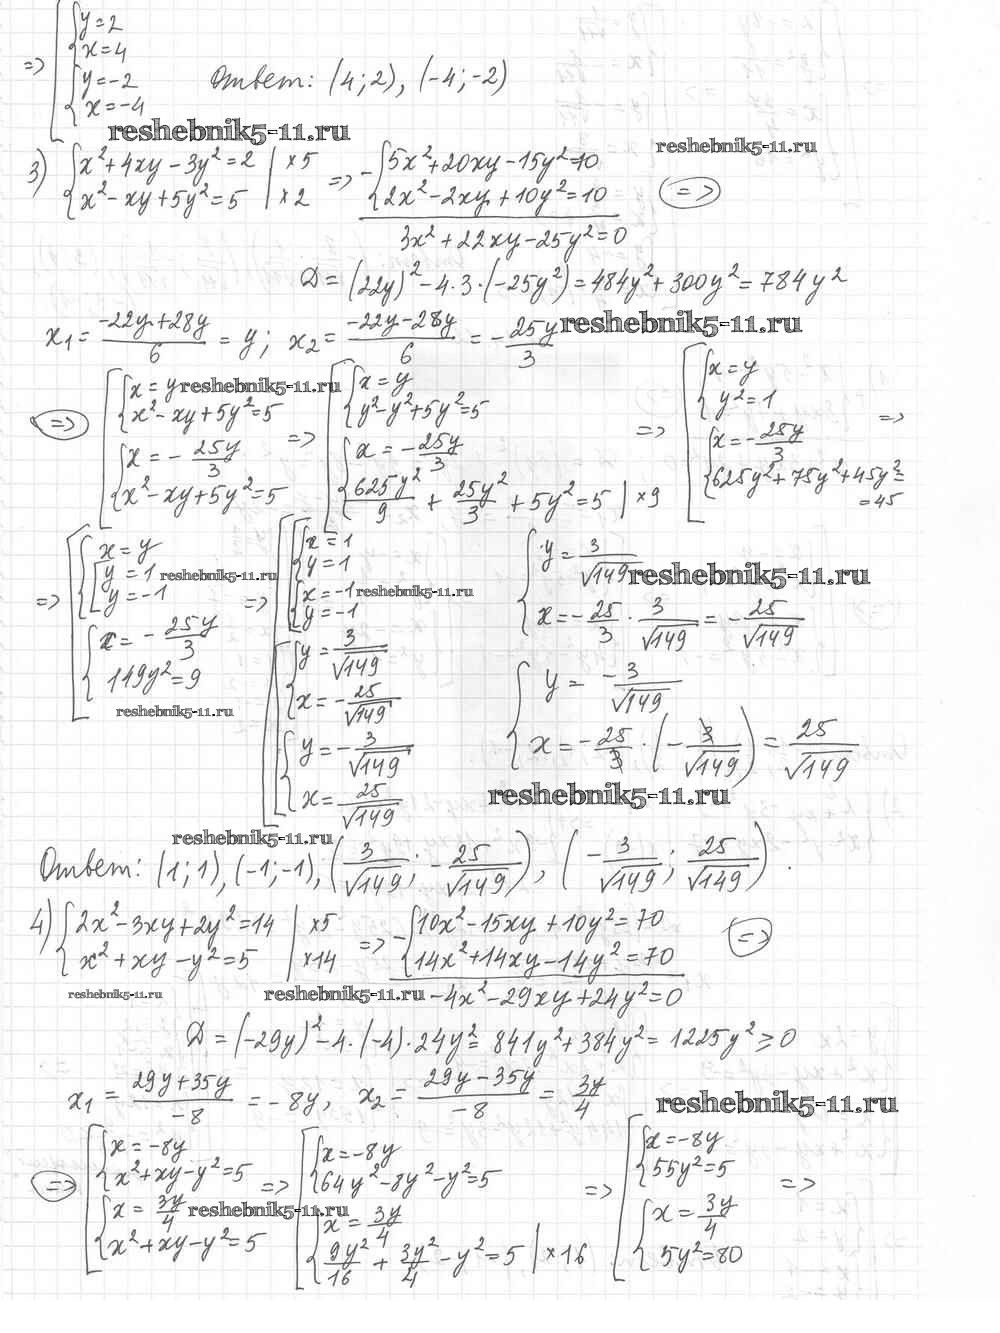 => [ { y=2
x=4
{ y=-2
x=-4
Ответ: (4;2), (-4;-2)
reshebnik5-11.ru
reshebnik5-11.ru
3) { x²+4xy-3y²=2 | ×5 => - { 5x²+20xy-15y²=10
{ x²-xy+5y²=5 | ×2 { 2x²-2xy+10y²=10 (=>)
3x²+22xy-25y²=0
D=(22y)²-4·3·(-25y²)=484y²+300y²=784y²
x₁= (-22y+28y)/6 = y; x₂= (-22y-28y)/6 = -25y/3
reshebnik5-11.ru
(=>) [ { x=y
x²-xy+5y²=5
{ x=-25y/3
x²-xy+5y²=5
reshebnik5-11.ru
=> [ { x=y
y²-y²+5y²=5
{ x=-25y/3
625y²/9 + 25y²/3 + 5y²=5 | ×9
=> [ { x=y
y²=1
{ x=-25y/3
625y²+75y²+45y²=
=45
=>
=> [ { x=y
[ y=1
y=-1
{ x=-25y/3
149y²=9
reshebnik5-11.ru
reshebnik5-11.ru
=> [ { x=1
y=1
{ x=-1
y=-1
{ y=3/√149
x=-25/√149
{ y=-3/√149
x=25/√149
reshebnik5-11.ru
{ y=3/√149
x=-25/3 · 3/√149 = -25/√149
reshebnik5-11.ru
{ y=-3/√149
x=-25/3 · (-3/√149) = 25/√149
reshebnik5-11.ru
reshebnik5-11.ru
Ответ: (1;1), (-1;-1), (3/√149; -25/√149), (-3/√149; 25/√149).
4) { 2x²-3xy+2y²=14 | ×5 => - { 10x²-15xy+10y²=70
{ x²+xy-y²=5 | ×14 { 14x²+14xy-14y²=70 (=>)
reshebnik5-11.ru
reshebnik5-11.ru
-4x²-29xy+24y²=0
D=(-29y)²-4·(-4)·24y²=841y²+384y²=1225y²≥0
x₁= (29y+35y)/-8 = -8y, x₂= (29y-35y)/-8 = 3y/4
reshebnik5-11.ru
(=>) [ { x=-8y
x²+xy-y²=5
{ x=3y/4
x²+xy-y²=5
reshebnik5-11.ru
=> [ { x=-8y
64y²-8y²-y²=5
{ x=3y/4
9y²/16 + 3y²/4 - y²=5 | ×16
=> [ { x=-8y
55y²=5
{ x=3y/4
5y²=80
=>